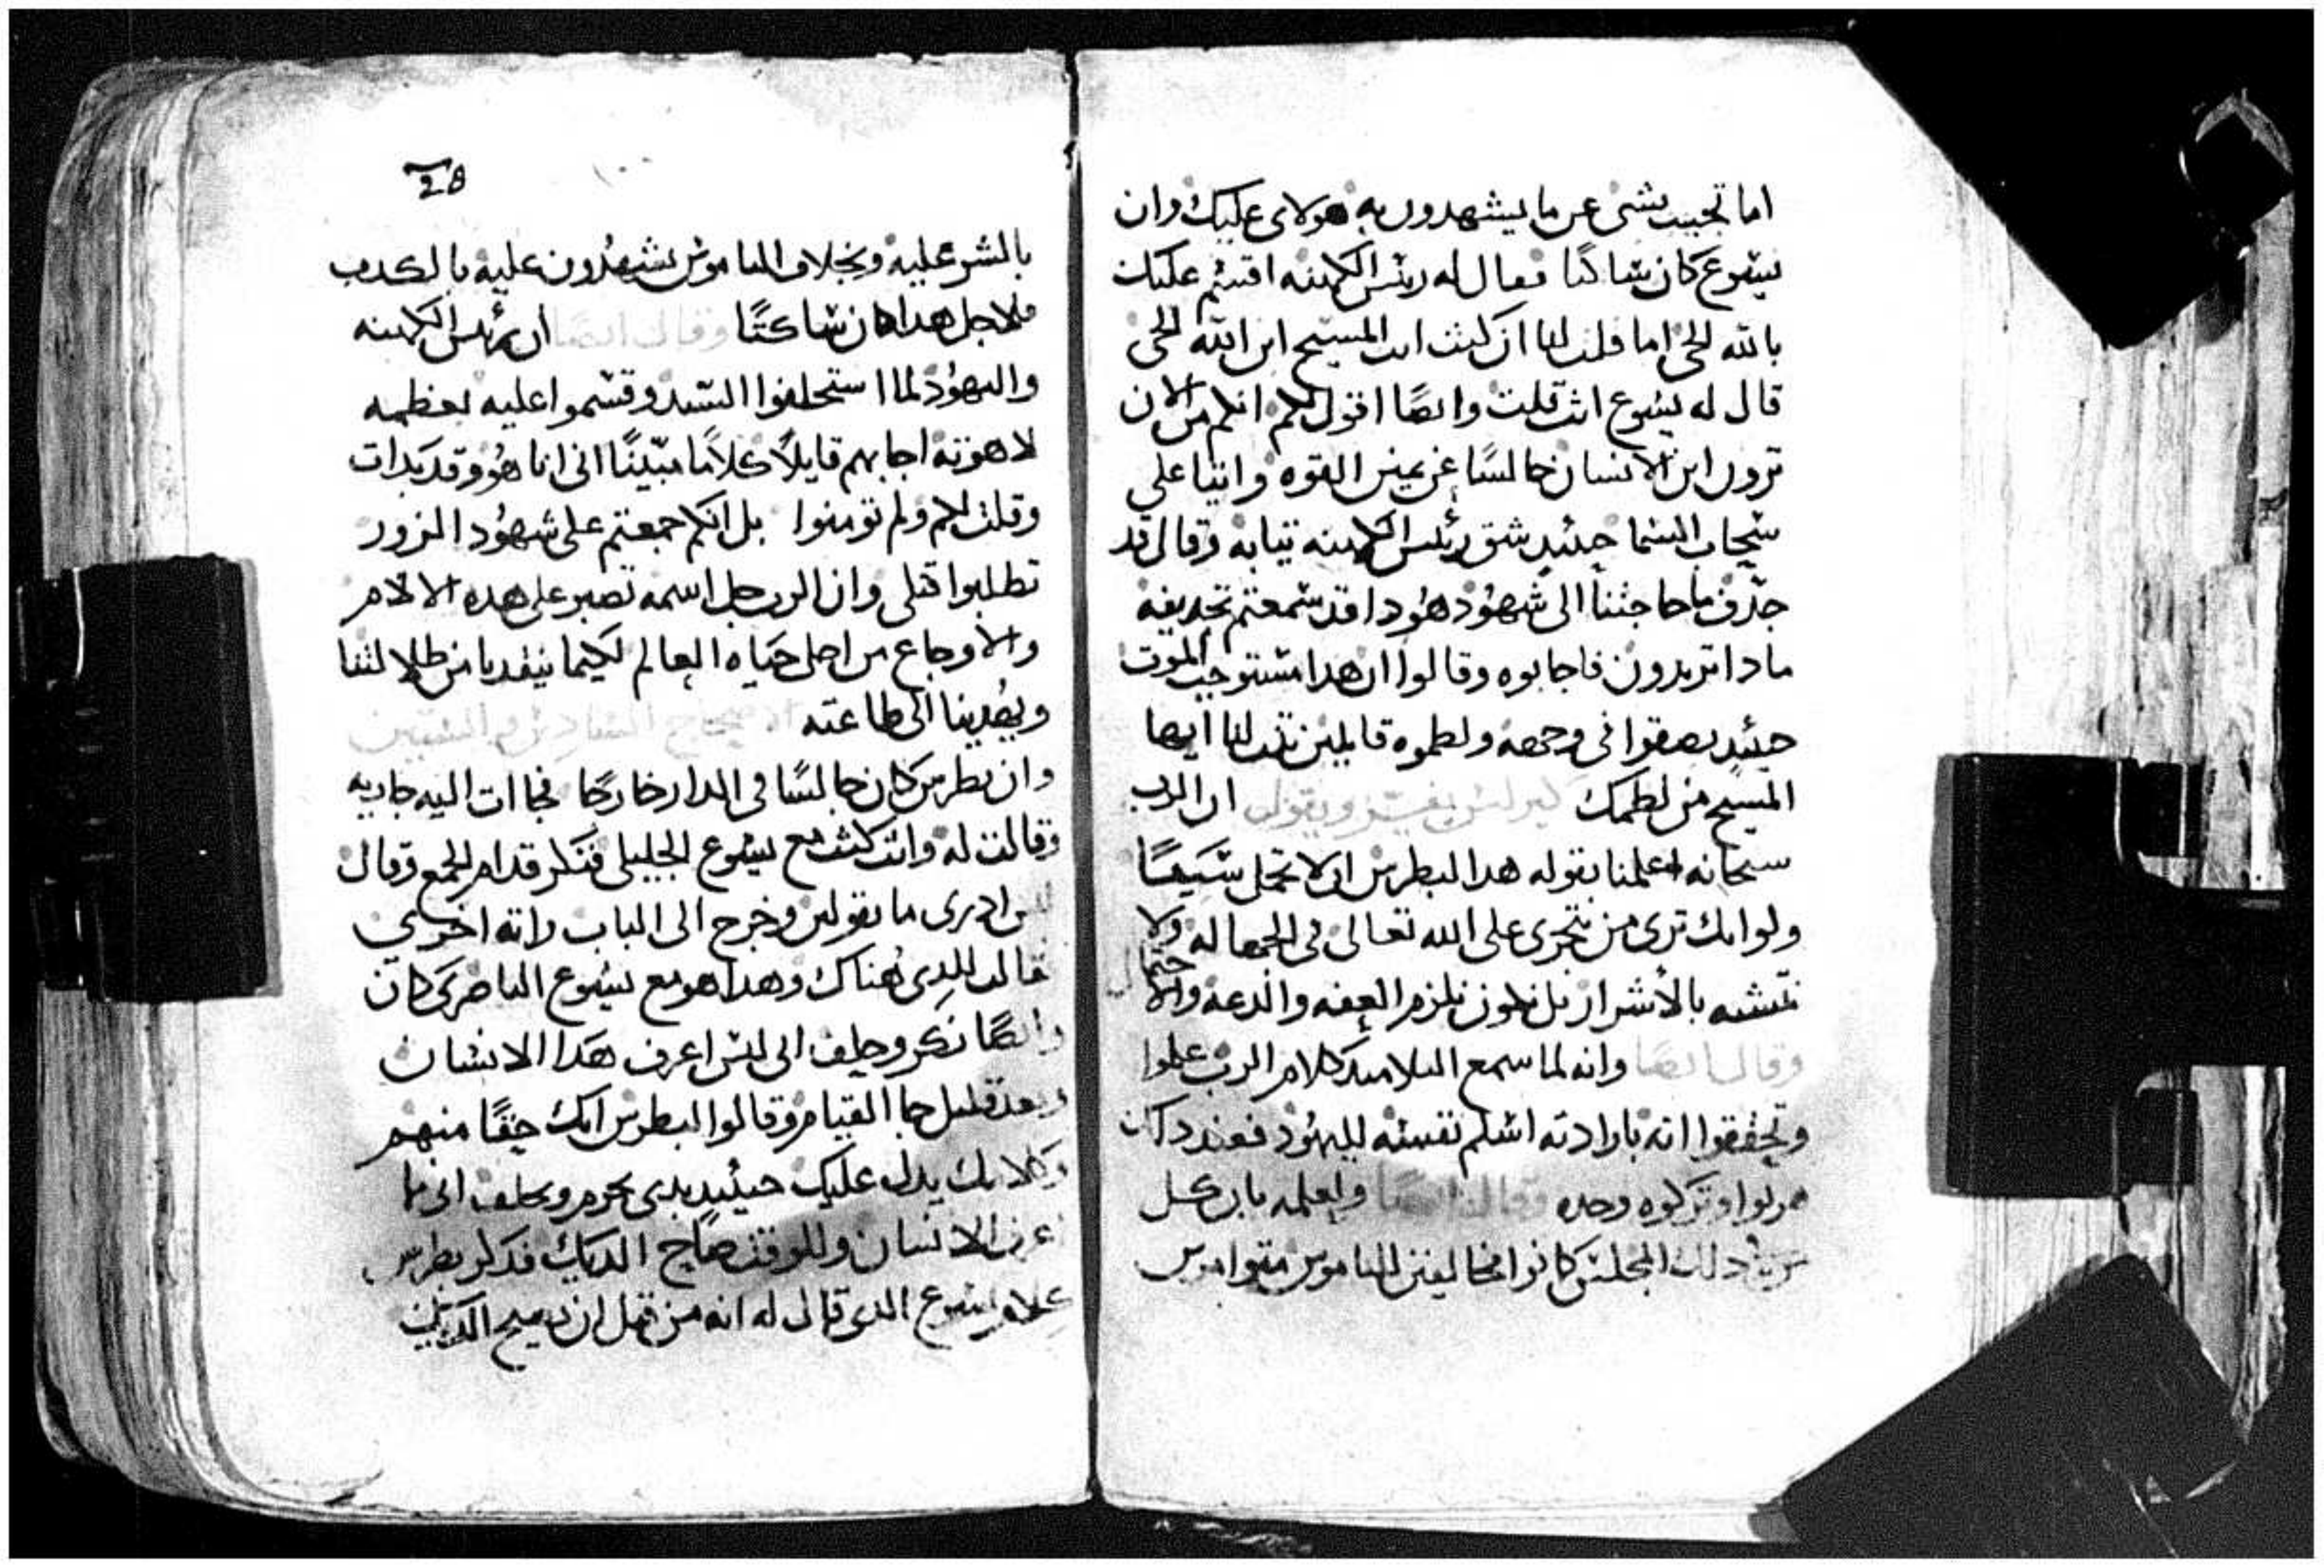 اما تجيب بشى عن ما يشهدون به هولاى عليك وان
يسوع كان ساكتا فقال له ريس الكهنه اقسم عليك
بالله الحى اما قلت لنا ان كنت انت المسيح ابن الله الحى
قال له يسوع انت قلت وايضًا اقول لكم انكم من الان
ترون ابن الانسان جالسًا عن يمين القوه واتيا على
سحاب السما حينيدٍ شق رئيس الكهنه تيابه وقال قد
جدّف ما حاجتنا الى شهود هودا قد سمعتم تجديفه
مادا تريدون فاجابوه وقالوا ان هدا مستوجب الموت
حينيدٍ بصقوا فى وجهه ولطموه قايلين تنب لنا ايها
المسيح من لطمك كيرلس يفسر ويقول ان الرب
سبحانه اعلمنا بقوله هدا لبطرس ان لا تحمل سَيفًا
ولو انك ترى من يتجرى على الله تعالى فى الجهاله ولا
نتشبه بالأشرار بل نكون نلزم العفه والدعه والاحتمال
وقال ايضا وانه لما سمع التلاميد كلام الرب علموا
وتحققوا انه بارادته اسلم نفسه لليهود فعند داك
هربوا وتركوه وحده وقال ايضًا واعلمه بان كل
دلك المجلس كانوا مخالفين الناموس متوامرين
28
١٠٠
بالشر عليه وبخلاف الناموس يشهدون عليه بالكدب
فلاجل هدا كان ساكتًا وقال ايضًا ان رئيس الكهنه
واليهود لما استحلفوا السيد وقسموا عليه بعظمه
لاهوته اجابهم قايلاً كلامًا مبيّنًا انى انا هو وقد بدات
وقلت لكم ولم تومنوا بل انكم جمعتم على شهود الزور
تطلبوا قتلى وان الرب جل اسمه تصبر على هده الالام
والاوجاع من اجل حياه العالم لكيما ينقدنا من ظلالتنا
ويهدينا الى طاعته الاصحاح السادس والستين
وان بطرس كان جالسًا فى الدار خارجًا فجاات اليه جاريه
وقالت له وانت كنت مع يسوع الجليلى فنكر قدام الجمع وقال
لس ادرى ما تقولين وخرج الى الباب راته اخرى
فقالت للدى هناك وهدا هو مع يسوع الناصرى كان
وايضًا نكر وحلف انى ليس اعرف هدا الانسان
وبعد قليل جا القيام وقالوا لبطرس انك حقًا منهم
وكلامك يدل عليك حينيدٍ بدى يحرم ويحلف انى ما
اعرف الانسان وللوقت صاح الديك فدكر بطرس
كلام يسوع الدى قال له انه من قبل ان يصيح الديك